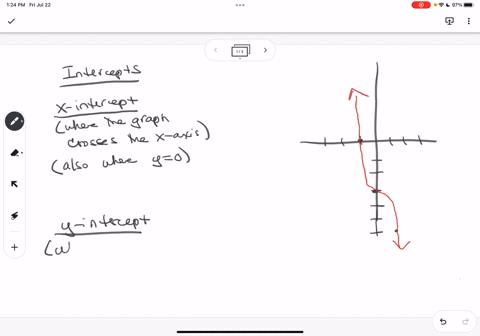 1:24 PM Fri Jul 22
1/1
Intercepts
x-intercept
(where the graph
crosses the x-axis)
(also where y=0)
y-intercept
(w